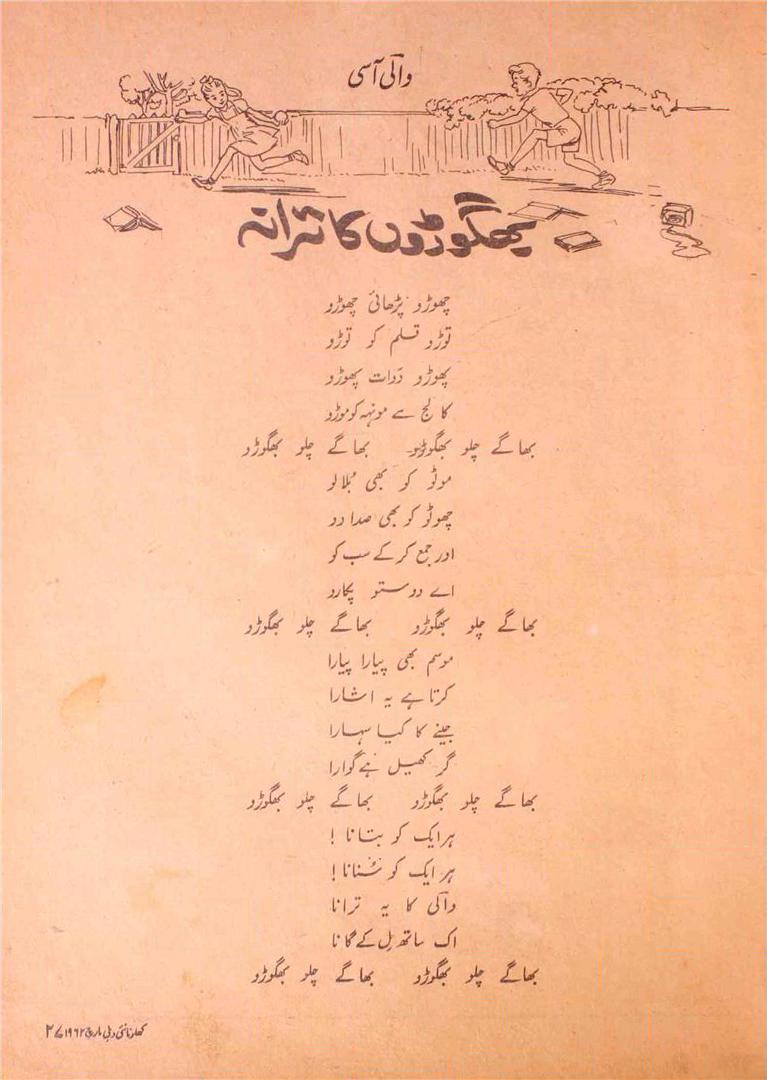 والی آسی
بھگوڑوں کا ترانہ
چھوڑو پڑھائی چھوڑو
توڑو قلم کو توڑو
پھوڑو دَوات پھوڑو
کالج سے مونہہ کو موڑو
بھاگے چلو بھگوڑو بھاگے چلو بھگوڑو
موٹو کو بھی بُلا لو
چھوٹو کو بھی صدا دو
اور جمع کر کے سب کو
اے دوستو پکارو
بھاگے چلو بھگوڑو بھاگے چلو بھگوڑو
موسم بھی پیارا پیارا
کرتا ہے یہ اشارا
جینے کا کیا سہارا
گر کھیل ہے گوارا
بھاگے چلو بھگوڑو بھاگے چلو بھگوڑو
ہر ایک کو بتانا !
ہر ایک کو سُنانا !
والی کا یہ ترانا
اک ساتھ مِل کے گانا
بھاگے چلو بھگوڑو بھاگے چلو بھگوڑو
نئی دہلی مارچ ۱۹۶۲ء ۲